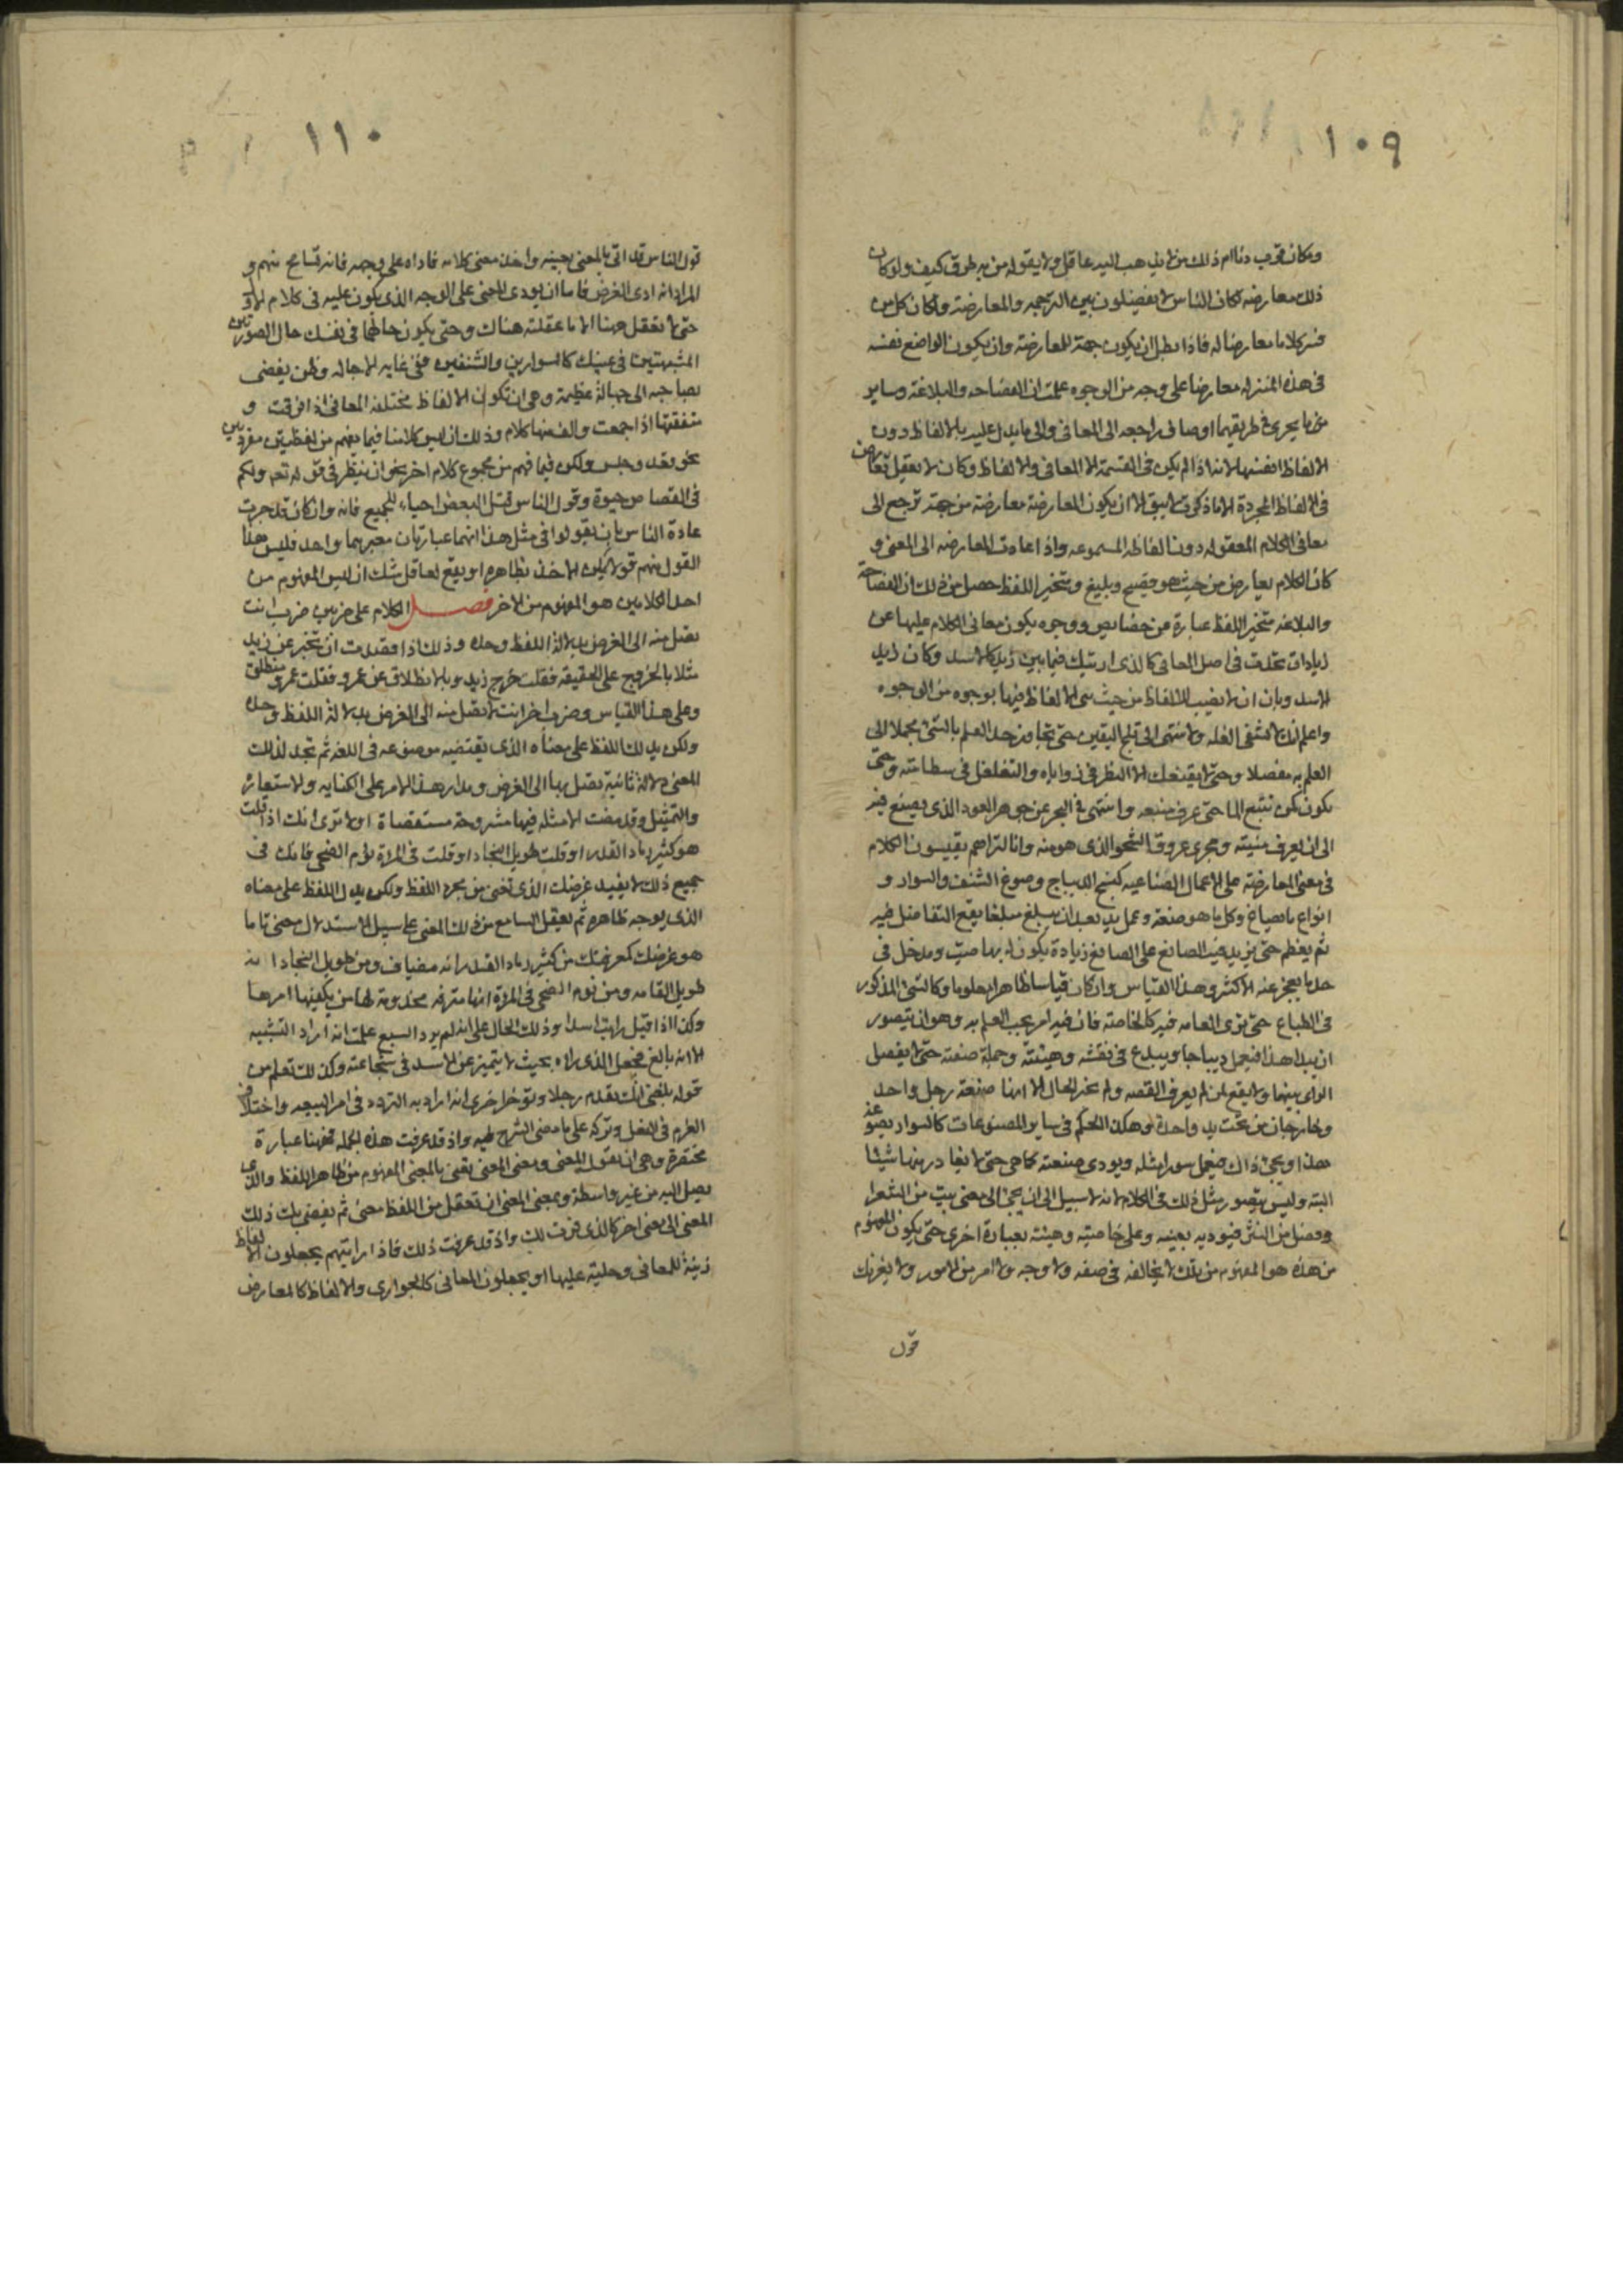 ١٠٩
ومكان قريب دنا ام ذلك من يذهب اليه عاقل ولا يقوله من به طرق كيف ولو كان
ذلك معارضه لكان الناس لا يفصلون بين الترجمه والمعارضة ولكان كل من
فسر كلاما معارضا له فاذا بطل ان يكون جهة للمعارضة وان يكون الواضع نفسه
فى هذه المنزله معارضا على وجه من الوجوه علمت ان الفصاحه والبلاغة وساير
ما يجرى فى طريقهما اوصاف راجعه الى المعانى والى ما يدل عليه بالالفاظ دون
الالفاظ انفسها لانه اذا لم يكن فى القسمة الا المعانى والالفاظ وكان لا يعقل تعارض
فى الالفاظ المجردة الا ما ذكرت لم يبق الا ان يكون المعارضة معارضة من جهة ترجع الى
معانى الكلام المعقوله دون الفاظه المسموعه واذا عادت المعارضه الى المعنى و
كان الكلام يعارض من حيث هو فصيح وبليغ ومتخير اللفظ حصل من ذلك ان الفصاحة
والبلاغه وتخير اللفظ عبارة عن خصايص ووجوه يكون معانى الكلام عليها عن
زيادات تحدث فى اصل المعانى كالذى اريتك فيما بين زيد كالاسد وكان زيد
الاسد وبان ان لا نصيب للالفاظ من حيث هى الالفاظ فيها بوجوه من الوجوه
واعلم انك لا تشفى الغله ولا تنتهى الى ثلج اليقين حتى تتجاوز حد العلم بالشئ مجملا الى
العلم به مفصلا وحتى لا يقنعك الا النظر فى زواياه والتغلغل فى مكامنه وحتى
تكون كمن تتبع الما حتى عرف منبعه وانتهى فى البحر عن جوهر العود الذى يصنع فيه
الى ان يعرف منبته ومجرى عروق الشجر الذى هو منه وانا لنراهم يقيسون الكلام
فى معنى المعارضة على الاعمال الصناعيه كنسج الديباج وصوغ الشنف والسوار و
انواع ما يصاغ وكل ما هو صنعة وعمل يد بعد ان يبلغ مبلغا يقع التفاضل فيه
ثم يعظم حتى يزيد فيه الصانع على الصانع زيادة يكون له بها صيت ومدخل فى
حد ما يعجز عنه الاكثر وهذا القياس وان كان قياسا ظاهرا معلوما وكالشئ المذكور
فى الطباع حتى ترى العامه فيه كالخاصة فان فيه امرا يجب العلم به وهو انه يتصور
ان يبدا هذا فيعمل ديباجا ويبدع فى نقشه وهيئته وجملة صنعته حتى لا يفصل
الراى بينهما ولا يقع لمن لم يعرف القصه ولم يخبر الحال الا انها صنعة رجل واحد
وخارجان من تحت يد واحدة وهكذا الحكم فى ساير المصنوعات كالسوار يصوغه
هذا ويجئ ذاك فيعمل سوارا مثله ويودى صنعته كما هى حتى لا يغادر منها شيئا
البتة وليس يتصور مثل ذلك فى الكلام لانه لا سبيل الى ان يجئ الى معنى بيت من الشعر او
وفصل من النثر فيوديه بعينه وعلى خاصيته وهيئته بعبارة اخرى حتى يكون المفهوم
من هذه هو المفهوم من تلك لا يخالفه فى صفه ولا وجه ولا امر من الامور ولا يغرنك
قول
١١٠
قول الناس قد اتى بالمعنى بعينه واخذ معنى كلامه فاداه على وجهه فانه تسامح منهم و
المراد انه ادى الغرض فاما ان يودى المعنى على الوجه الذى يكون عليه فى كلام الاول
حتى لا تعقل ههنا الا ما عقلته هناك وحتى يكون حالهما فى نفسك حال الصورتين
المشبهتين فى عينيك كالسوارين والشنفين ففى غايه الاحاله وظن يفضى
بصاحبه الى جهالة عظيمة وهى ان تكون الالفاظ مختلفه المعانى اذا افرقت و
متفقتها اذا جمعت والف منها كلام وذلك ان ليس كلامنا فيما يفهم من لفظين مفردتين
نحو قعد وجلس ولكن فيما فهم من مجموع كلام اخر نحو ان ينظر فى قوله تعه ولكم
فى القصاص حيوة وقول الناس قتل البعض احياء للجميع فانه وان كان قد جرت
عادة الناس بان يقولوا فى مثل هذا انهما عبارتان معبرهما واحد فليس هذا
القول منهم قولا يمكن الاخذ بظاهره او يقع لعاقل شك ان ليس المفهوم من
احد الكلامين هو المفهوم من الاخر فصـــل الكلام على ضربين ضرب انت
تصل منه الى الغرض بدلالة اللفظ وحده وذلك اذا قصدت ان تخبر عن زيد
مثلا بالخروج على الحقيقه فقلت خرج زيد وبالانطلاق عن عمرو فقلت عمرو منطلق
وعلى هذا القياس وضرب اخر انت لا تصل منه الى الغرض بدلالة اللفظ وحده
ولكن يدلك اللفظ على معناه الذى يقتضيه موضوعه فى اللغه ثم تجد لذلك
المعنى دلالة ثانية تصل بها الى الغرض ومدار هذا الامر على الكنايه والاستعارة
والتمثيل وقد مضت الامثله فيها مشروحة مستقصاة اولا ترى انك اذا قلت
هو كثير رماد القدر او قلت طويل النجاد او قلت فى المراة نؤم الضحى فانك فى
جميع ذلك لا يفيد غرضك الذى تعنى من مجرد اللفظ ولكن يدل اللفظ على معناه
الذى يوجبه ظاهره ثم يعقل السامع من ذلك المعنى على سبيل الاستدلال معنى ثانيا
هو غرضك كمعرفتك من كثير رماد القدر انه مضياف ومن طويل النجاد انه
طويل القامه ومن نوم الضحى فى المراة انها مترفه مخدومة لها من يكفيها امرها
وكذا اذا قيل رايت اسدا وذلك الحال على انه لم يرد السبع علمت انه اراد التشبيه
الا انه بالغ فجعل الذى راه بحيث لا يتميز عن الاسد فى شجاعته وكذلك تعلم من
قوله بلغنى انك تقدم رجلا وتوخر اخرى انه اراد به التردد فى امر البيعه واختلاف
العزم فى الفعل وتركه على ما مضى الشرح فيه واذ قد عرفت هذه الجمله فههنا عبارة
مختصرة وهى ان نقول المعنى ومعنى المعنى تعنى بالمعنى المفهوم من ظاهر اللفظ والذى
يصل اليه من غير واسطة وبمعنى المعنى ان تعقل من اللفظ معنى ثم يفضى بك ذلك
المعنى الى معنى اخر كالذى فسرت لك واذ قد عرفت ذلك فاذا رايتهم يجعلون الالفاظ
زينة للمعانى وحلية عليها او يجعلون المعانى كالجوارى والالفاظ كالمعارض